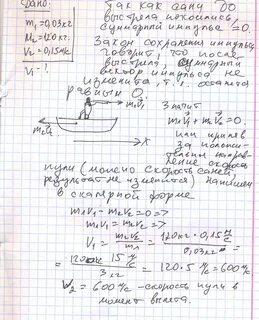 Дано:
m₁=0,03кг
M₂=120кг
V₂=0,15м/с
V₁-?
Так как сани до
выстрела покоились,
суммарный импульс =0.
Закон сохранения импульса
говорит, что после
выстрела, суммарный
вектор импульса не
изменится, т.е. остался
равным 0.
Значит
m₁V₁+m₂V₂=0.
или приняв
за положитель-
ное направле-
ние скорость
пули (можно скорость саней,
результат не изменится) напишем
в скалярной форме
m₁V₁-m₂V₂=0=>
m₁V₁=m₂V₂=>
V₁=m₂V₂/m₁=120кг·0,15м/с/0,03кг=
=120кг 15м/с/3кг=120·5м/с=600м/с
V₂=600м/с-скорость пули в
момент вылета.